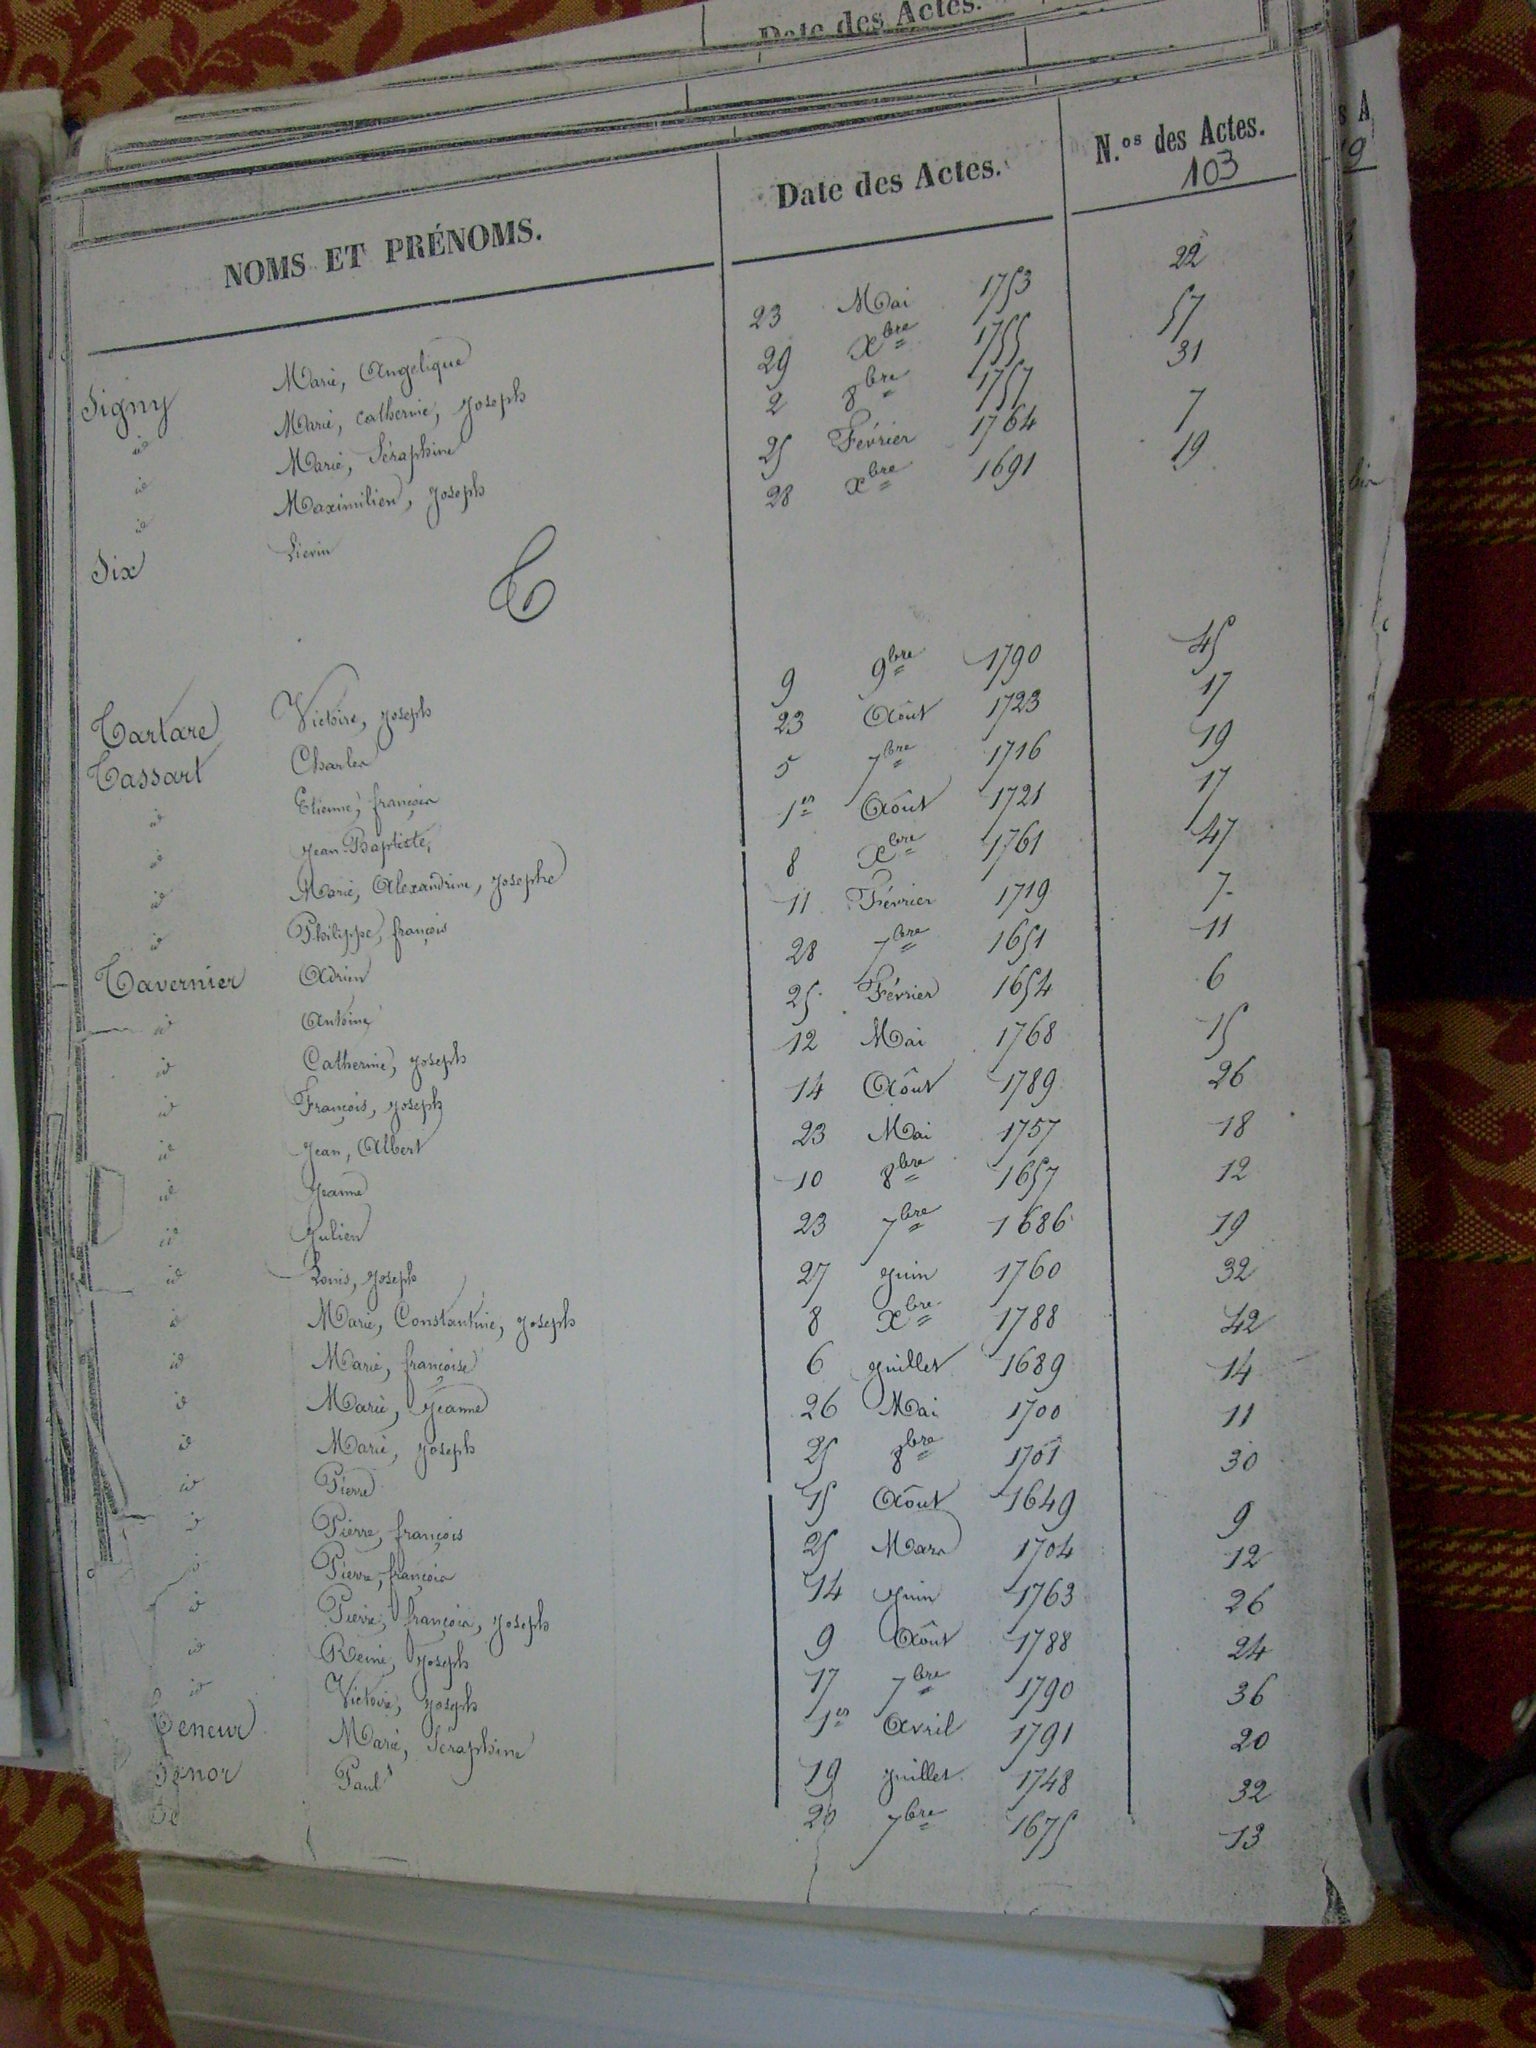 Date des Actes.
NOMS ET PRÉNOMS. Date des Actes. N.os des Actes.
103
Signy Marie, Angelique 23 Mai 1753 22
id Marie, Catherine, Joseph 29 Xbre 1755 57
id Marie, Séraphine 2 8bre 1757 31
id Maximilien, Joseph 25 Février 1764 7
Six Lievin 28 Xbre 1691 19
T
Tartare Victoire, Joseph 9 9bre 1790 45
Tassart Charles 23 Août 1723 17
id Etienne, françois 5 7bre 1716 19
id Jean Baptiste, 1er Août 1721 17
id Marie, Alexandrine, Josephe 8 Xbre 1761 47
id Philippe, françois 11 Février 1719 7
Tavernier Adrien 28 7bre 1651 11
id Antoine 25 Février 1654 6
id Catherine, Joseph 12 Mai 1768 15
id François, Joseph 14 Août 1789 26
id Jean, Albert 23 Mai 1757 18
id Jeanne 10 8bre 1657 12
id Julien 23 7bre 1686 19
id Louis, Joseph 27 Juin 1760 32
id Marie, Constantine, Joseph 8 Xbre 1788 42
id Marie, françoise 6 Juillet 1689 14
id Marie, Jeanne 26 Mai 1700 11
id Marie, Joseph 25 8bre 1761 30
id Pierre 15 Août 1649 9
id Pierre, françois 25 Mars 1704 12
id Pierre, françois 14 Juin 1763 26
id Pierre, françois, Joseph 9 Août 1788 24
id Remi, Joseph 17 7bre 1790 36
id Victoire, Joseph 1er Avril 1791 20
Teneur Marie, Séraphine 19 Juillet 1748 32
Paul 20 7bre 1675 13